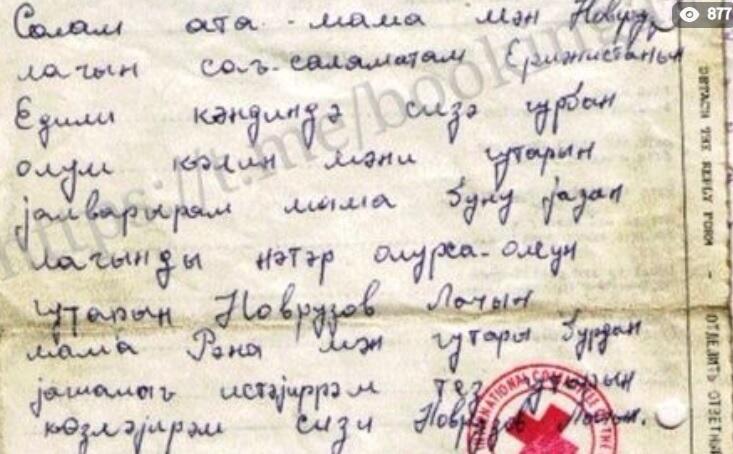 877
Салам ата-мама мән Новруз
лачын сағ-саламатам Ермәнистанын
Едили кәндиндә сизә гурбан
олум кәлин мәни гутарын
јалварырам мама буну јазан
лачынды нәтәр олурса-олсун
гутарын Новрузов Лачын
мама Рәна мән гутары бурдан
јашамағ истәјиррәм тез гутарын
көзләјирәм сизи Новрузов Лачын.
https://t.me/booking
DETACH THE REPLY FORM -
ОТДЕЛИТЬ ОТВЕТНЫ
INTERNATIONAL COMMITTEE THE